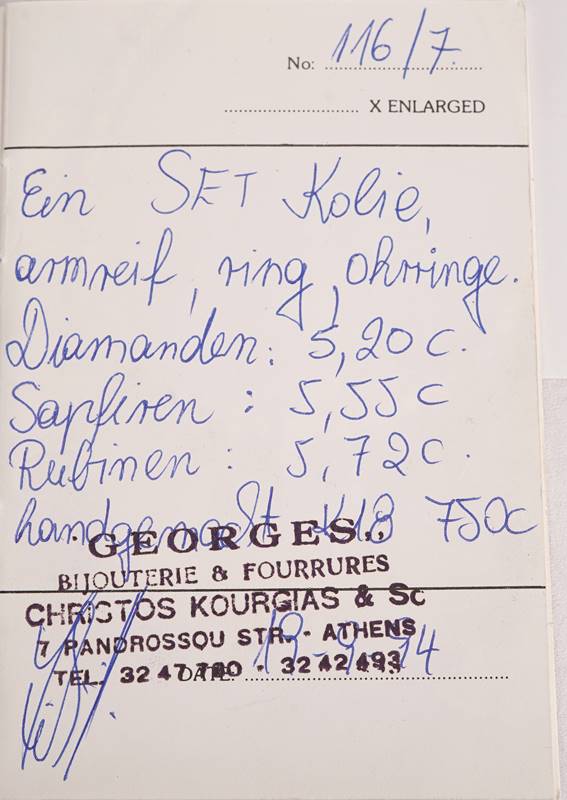 No: 116/7
X ENLARGED
Ein SET Kolie,
armreif, ring, ohrringe.
Diamanden: 5,20 c.
Sapfiren : 5,55 c
Rubinen : 5,72 c.
handgemacht K18 750c
"GEORGES"
BIJOUTERIE & FOURRURES
CHRISTOS KOURGIAS & Sc
7 PANDROSSOU STR. - ATHENS
TEL. 32 47 780 - 32 42 493
DATE: